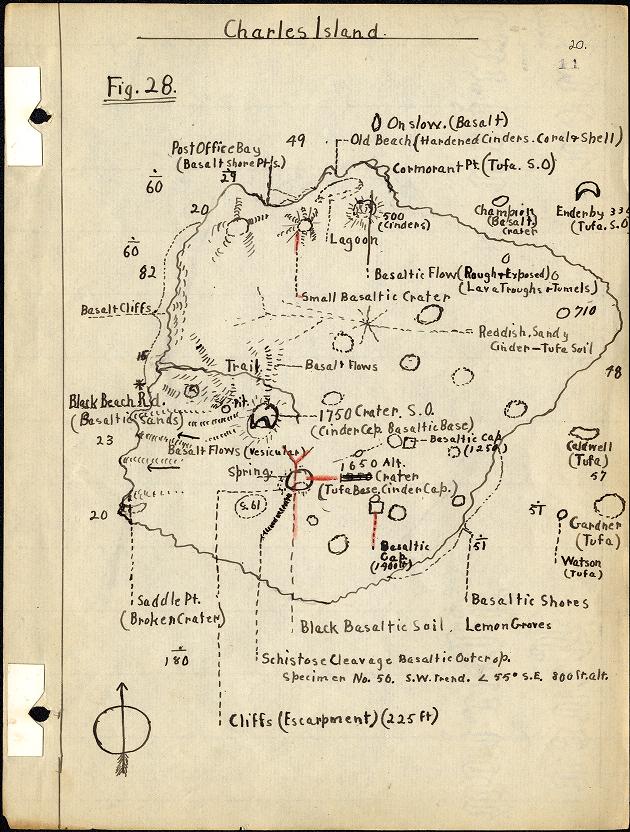 Charles Island.
20.
11
Fig. 28.
Onslow. (Basalt)
49
Old Beach (Hardened Cinders. Coral & Shell)
Post Office Bay
(Basalt Shore Pts.)
29
Cormorant Pt. (Tufa. S.O)
60
20
500
(Cinders)
Champion
(Basalt)
Crater
Enderby
(Tufa. S.O
Lagoon
60
82
Basaltic Flow (Rough & Exposed)
(Lava Troughs & Tunnels)
Small Basaltic Crater
710
Basalt Cliffs
Reddish, Sandy
Cinder-Tufa Soil
Trail
Basalt Flows
48
Black Beach Rd.
(Basaltic Sands)
Pit.
1750 Crater, S.O.
(Cinder Cap. Basaltic Base)
23
Basaltic Cap
(1250)
Basalt Flows (Vesicular)
Caldwell
(Tufa)
57
1650 Alt.
Crater
(Tufa Base, Cinder Cap.)
Spring
S. 61
20
51
Gardner
(Tufa)
Watson
(Tufa)
51
Basaltic
Cap
(1400ft)
Saddle Pt.
(Broken Crater)
Basaltic Shores
Black Basaltic Soil. Lemon Groves
180
Schistose Cleavage Basaltic Outcrop.
Specimen No. 56. S.W. Trend. ∠ 55° S.E. 800 ft. alt.
Cliffs (Escarpment) (225 ft)